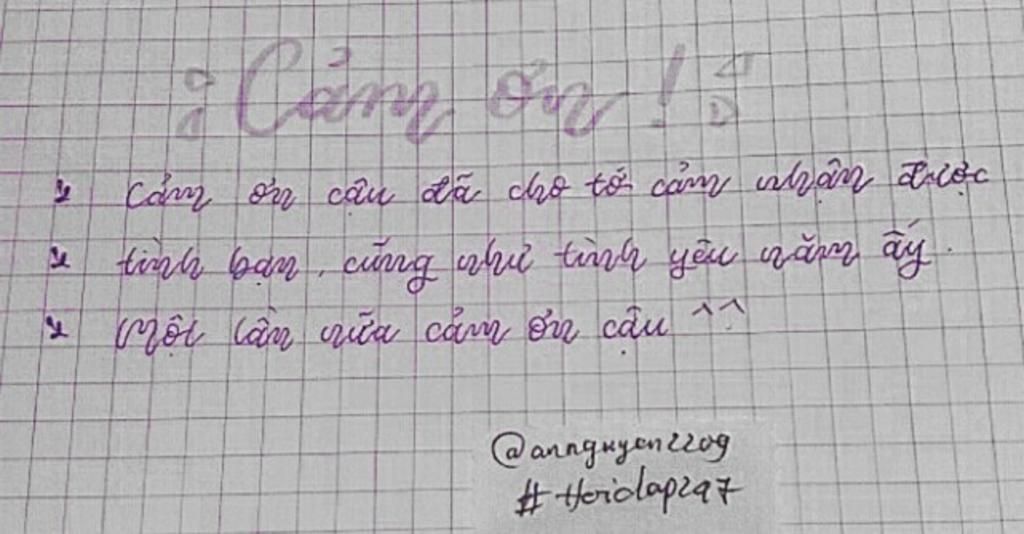 Cảm ơn !
Cảm ơn cậu đã cho tớ cảm nhận được
tình bạn, cũng như tình yêu năm ấy.
Một lần nữa cảm ơn cậu ^^
@annguyen2209
#Hoidap247